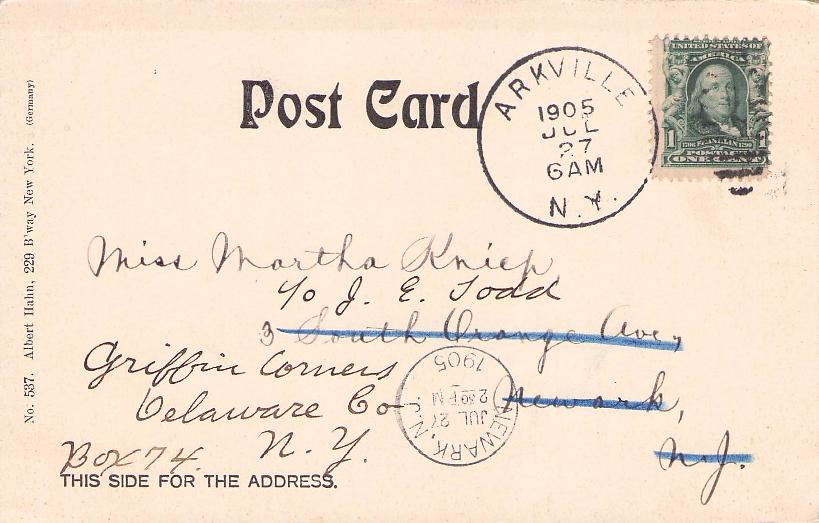 Post Card
ARKVILLE
1905
JUL
27
6AM
N.Y.
UNITED STATES OF
AMERICA
1 1
FRANKLIN
POSTAGE
ONE CENT
Miss Martha Kniep
c/o J. E. Todd
3 South Orange Ave,
Griffin Corners
Delaware Co
Newark,
N.Y.
N.J.
Box 74.
NEWARK, N.J.
JUL 27
1905
THIS SIDE FOR THE ADDRESS.
No. 537. Albert Hahn, 229 B'way New York. (Germany)